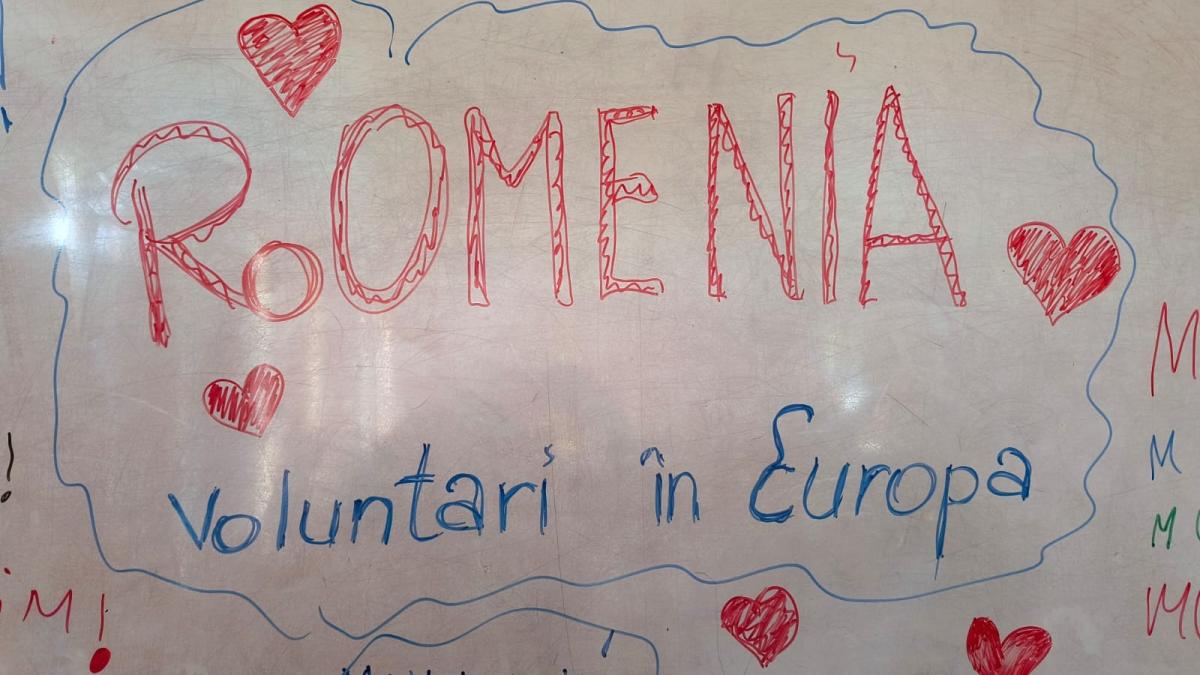 ROMENIA
Voluntari în Europa